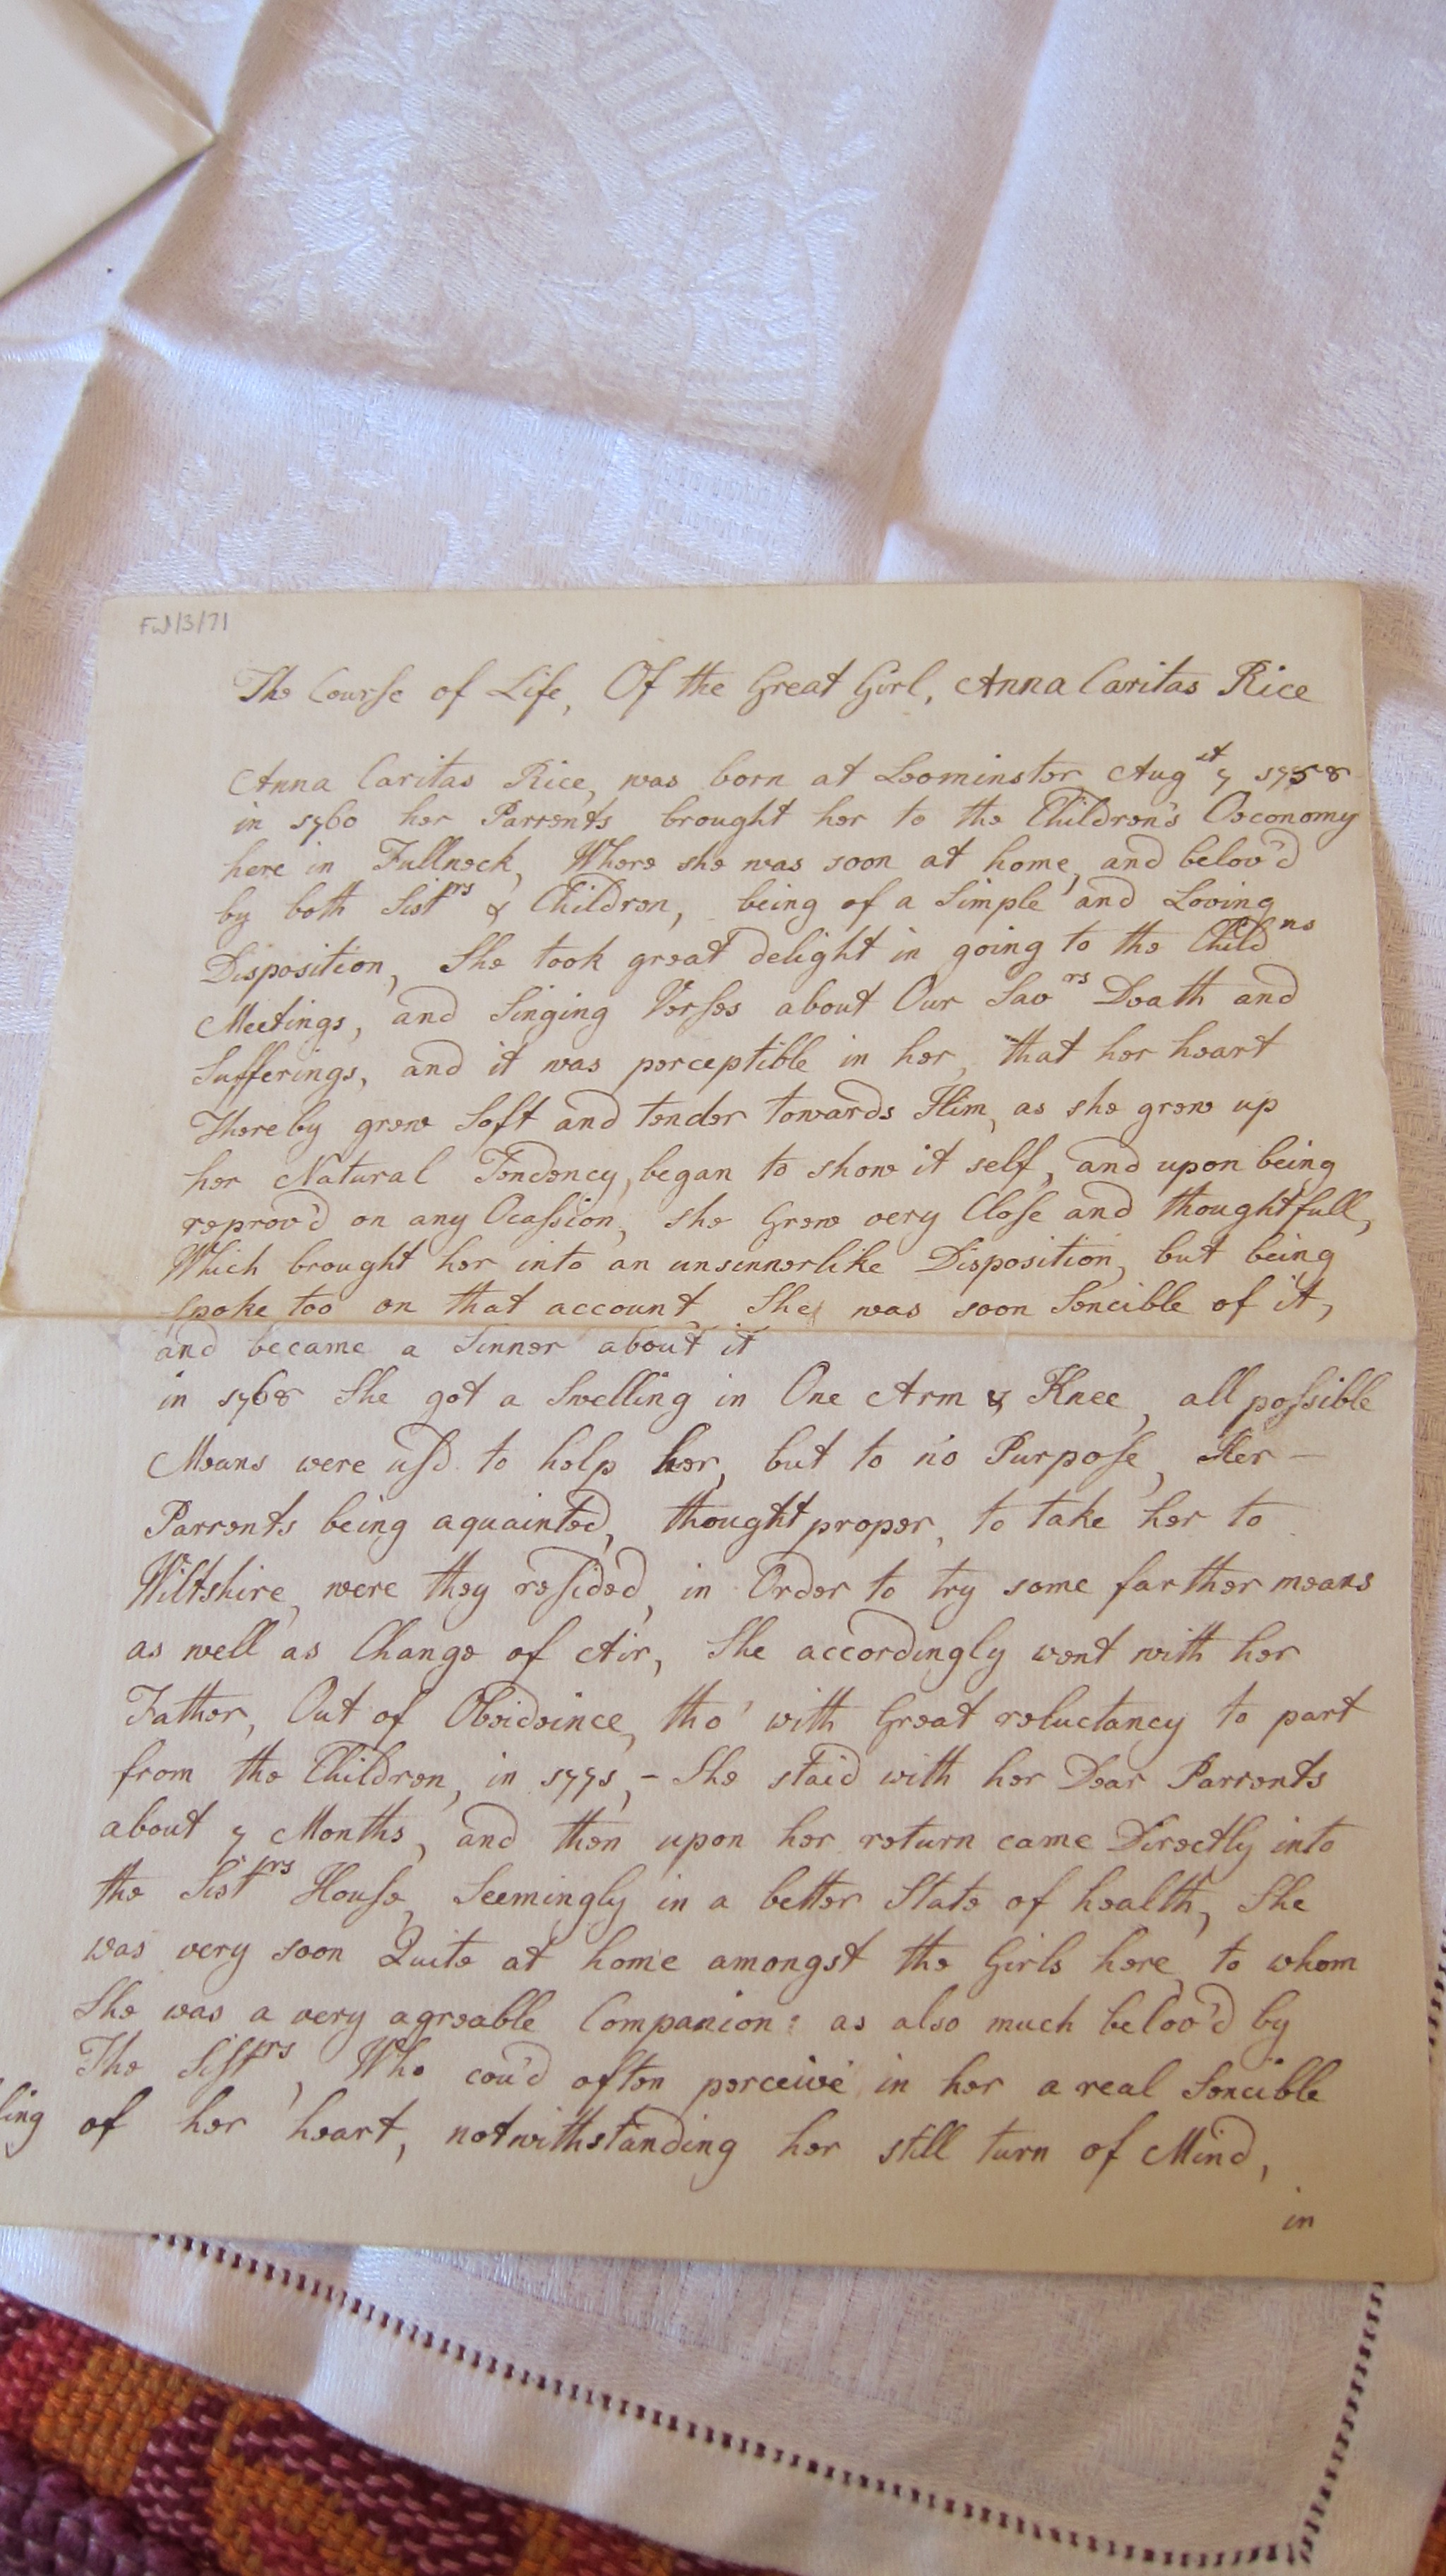 FW/3/71
The Course of Life, Of the Great Girl, Anna Caritas Rice
Anna Caritas Rice, was born at Leominster Aug st 7 1758
in 1760 her Parrents brought her to the Children's Oeconomy
here in Fullneck, Where she was soon at home, and belov'd
by both Sistrs & Children, being of a Simple and Loving
Disposition, She took great delight in going to the Childns
Meetings, and Singing Verses about Our Savrs Death and
Sufferings, and it was perceptible in her, that her heart
Thereby grew Soft and tender towards Him, as she grew up
her Natural Tendency, began to show it self, and upon being
reprov'd on any Ocassion, she Grew very Close and thoughtfull,
Which brought her into an unsinnerlike Disposition, but being
spoke too on that account, She was soon Sencible of it,
and became a Sinner about it
in 1768 She got a Swelling in One Arm & Knee, all possible
Means were usd to help her, but to no Purpose, Her -
Parrents being aquainted, thought proper, to take her to
Wiltshire, were they resided, in Order to try some farther means
as well as Change of Air, She accordingly went with her
Father, Out of Obeideince, tho' with Great reluctancy to part
from the Children, in 1771, - She staid with her Dear Parrents
about 7 Months, and then upon her return came Directly into
the Sistrs House, Seemingly in a better State of health, She
was very soon Quite at home amongst the Girls here, to whom
She was a very agreable Companion: as also much belov'd by
The Sistrs, Who cou'd often perceive in her a real Sencible
ling of her heart, notwithstanding her still turn of Mind,
in